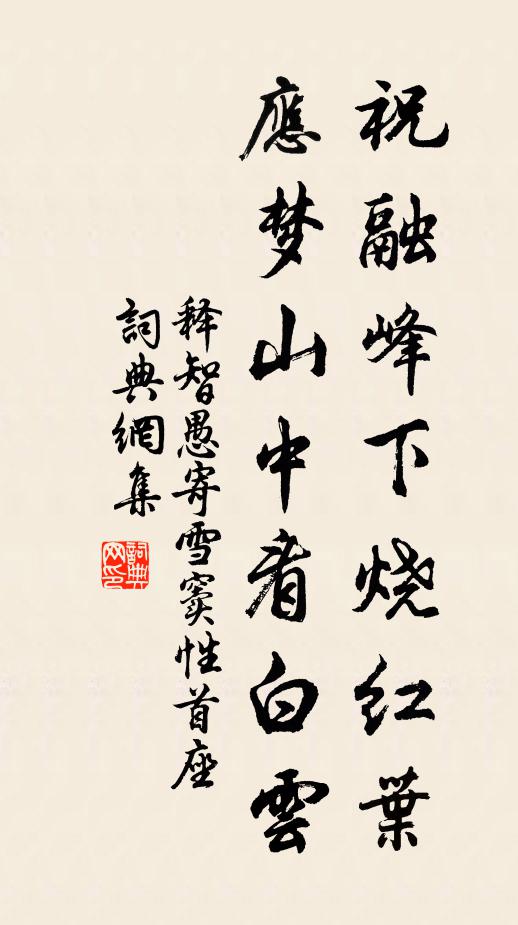 祝融峰下烧红葉
應梦山中看白雲
释智愚寄雪窦性首座
詞典網集
詞典网印